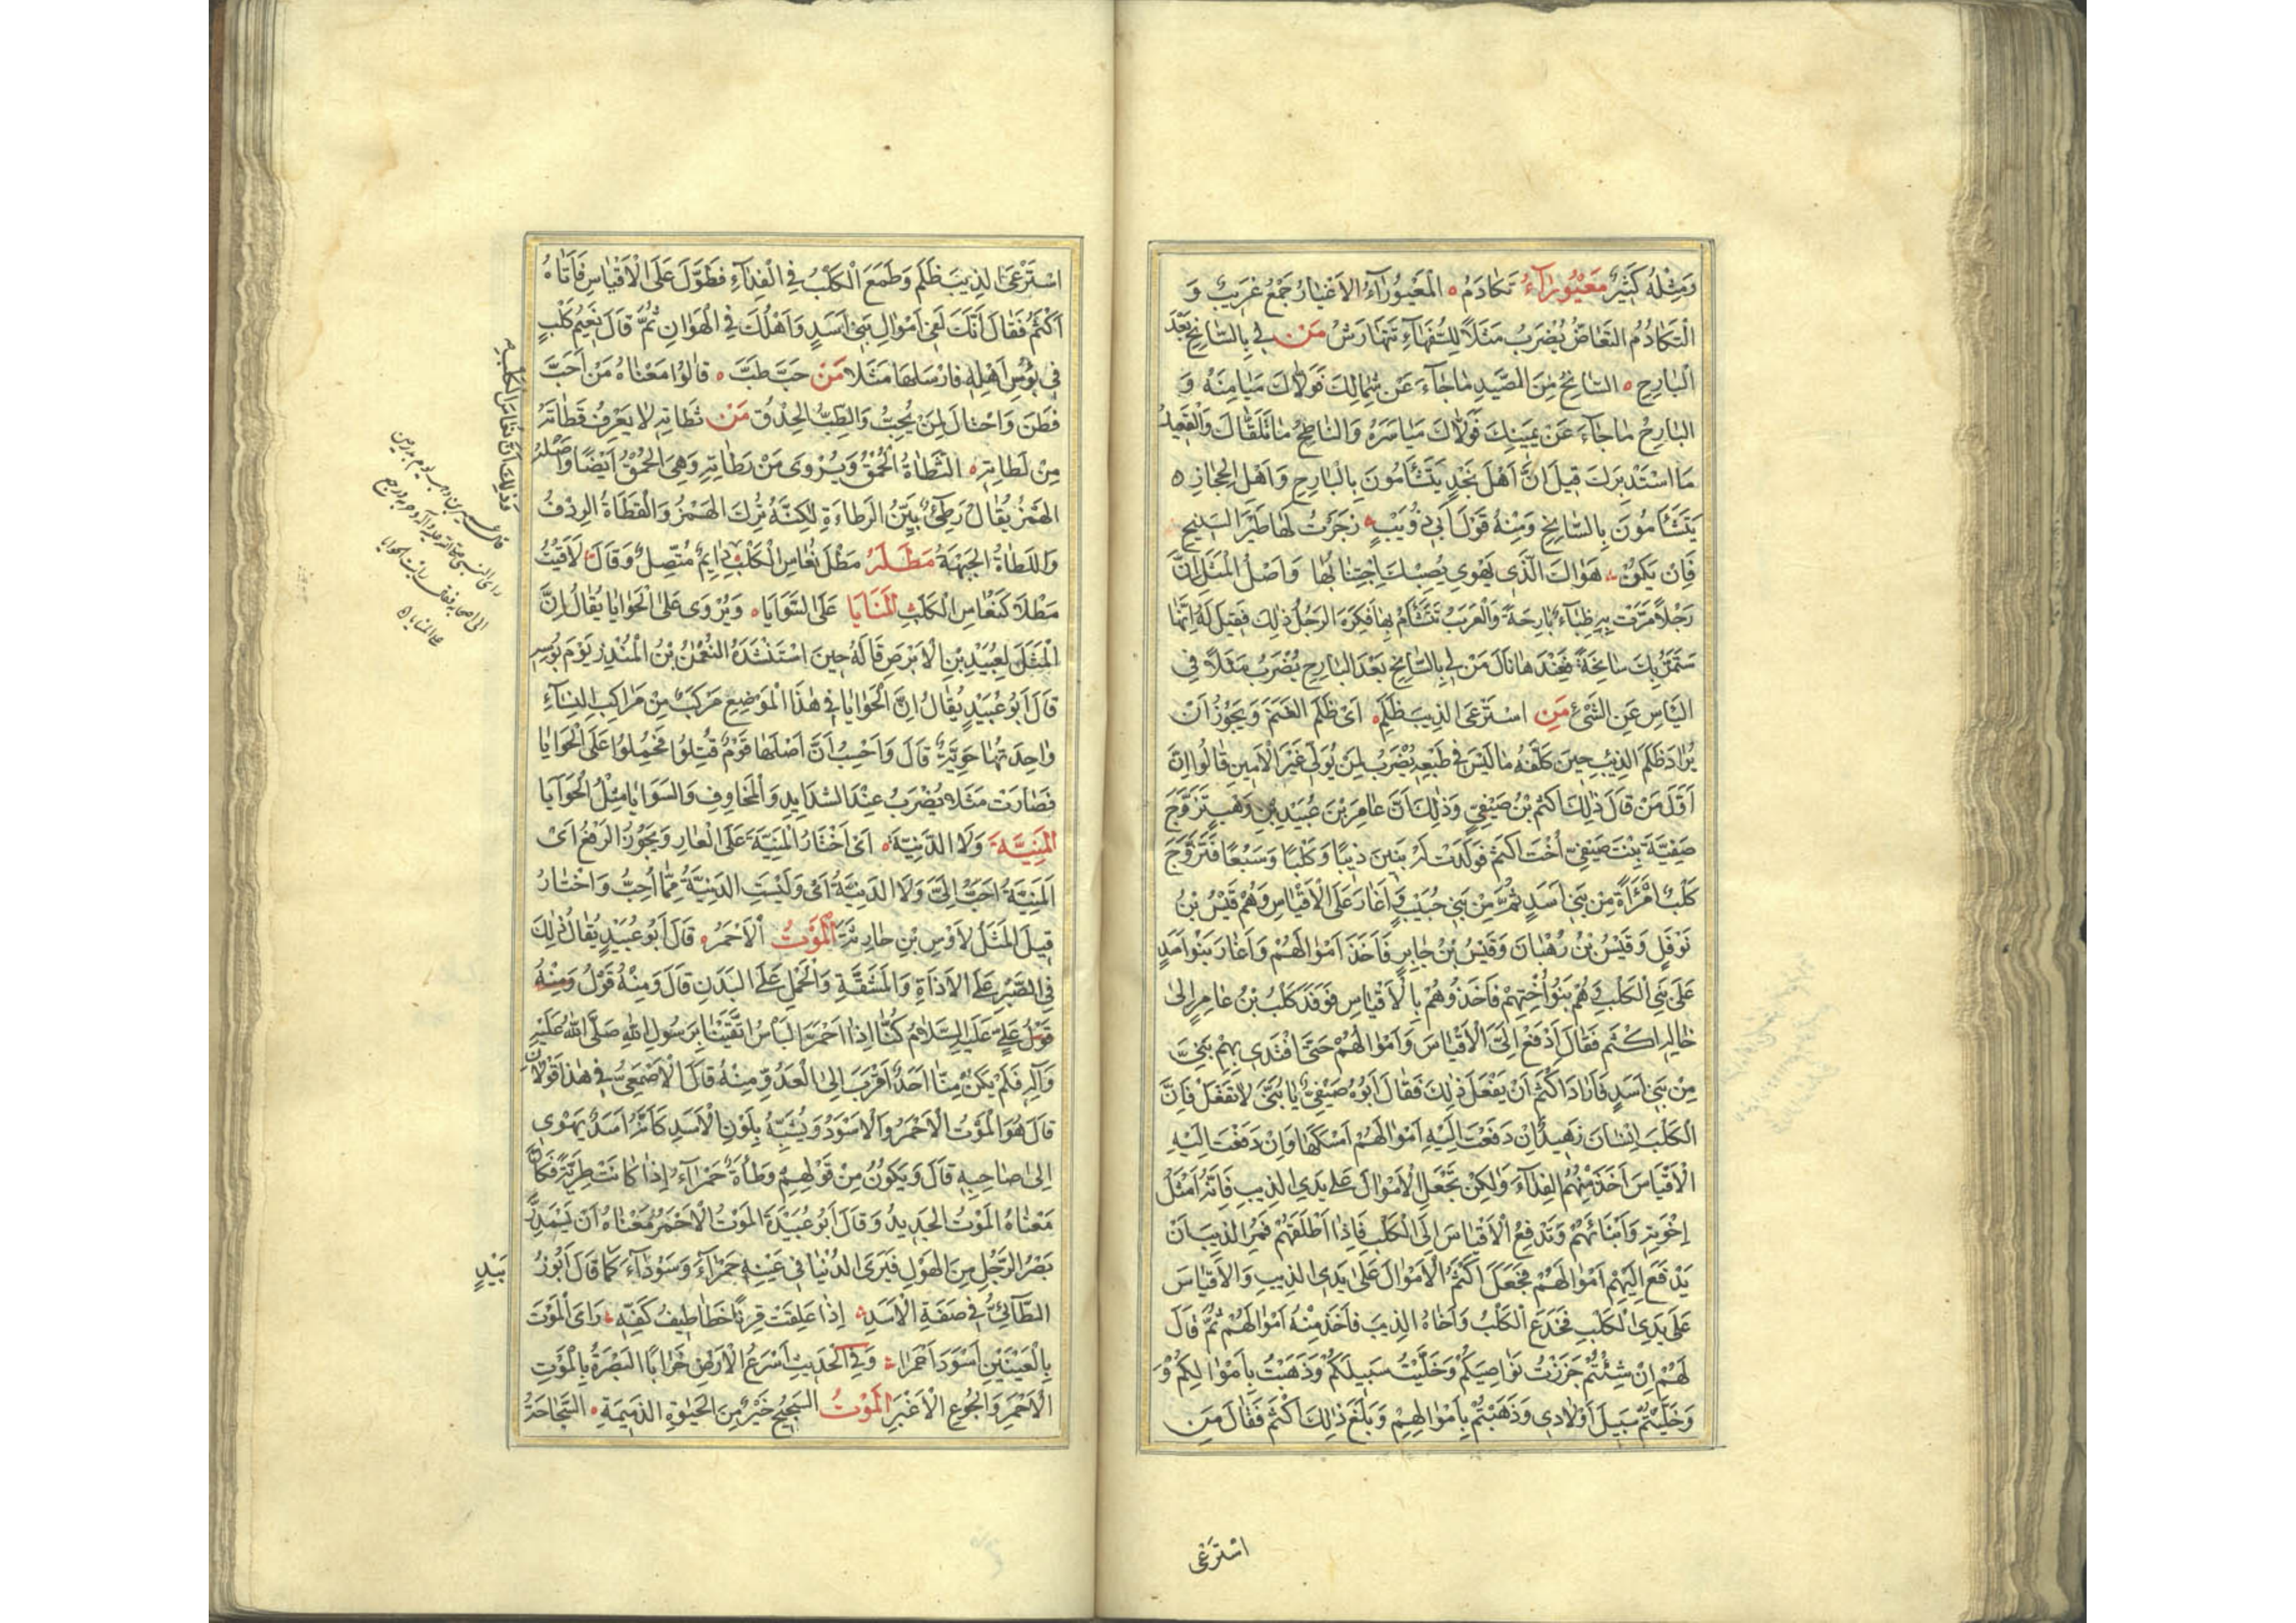 وَمِثْلُهُ كَثِيرٌ مَعْيُورَآءُ تَكَادَمُ ه الْمَعْيُورَآءُ الاَعْيَارُ جَمْعُ غَرِيبٌ وَ
الْتَكَادُمُ التَعَاضُّ يُضْرَبُ مَثَلًا لِلسُّفَهَآءِ تَتَهَارَشُ مَنْ لِى بِالسَّانِحِ بَعْدَ
الْبَارِحِ ه السَّانِحُ مِنَ الصَّيْدِ مَا جَآءَ عَنْ شِمَالِكَ فَوَلَّاكَ مَيَامِنَهُ وَ
البَارِحُ مَا جَآءَ عَنْ يَمِينِكَ فَوَلَّاكَ مَيَاسِرَهُ وَالنَاطِحُ مَا تَلَقَّاكَ وَالْقَعِيدُ
مَا اسْتَدْبَرَكَ قِيلَ اِنَّ أَهْلَ نَجْدٍ يَتَشَأَّمُونَ بِالْبَارِحِ وَاَهْلَ الْحِجَازِ ه
يَتَشَأَّمُونَ بِالسَّانِحِ وَمِنْهُ قَوْلُ أَبِى ذُوَيْبٍ زَجَرْتُ لَهَا طَيْرَ السَّنِيحِ
فَاِنْ يَكُنْ هَوَاكَ الَّذِى يَهْوِى يُصِبْكَ اِجْتِنَابُهَا وَاَصْلُ الْمَثَلِ اَنَّ
رَجُلًا مَرَّتْ بِهِ ظِبَآءٌ بَارِحَةٌ وَالْعَرَبُ تَتَشَأَّمُ بِهَا فَكَرِهَ الرَجُلُ ذٰلِكَ فَقِيلَ لَهُ اِنَّهَا
سَتَمُرُّ بِكَ سَانِحَةً فَعِنْدَهَا قَالَ مَنْ لِى بِالسَّانِحِ بَعْدَ البَارِحِ يُضْرَبُ مَثَلًا فِى
اليَأْسِ عَنِ الشَّىْءِ مَنِ اسْتَرْعَى الذِيبَ ظَلَمَ ه اَىْ ظَلَمَ الغَنَمَ وَيَجُوزُ اَنْ
يُرَادَ ظَلَمَ الذِيبَ حِينَ كَلَّفَهُ مَا لَيْسَ فِى طَبْعِهِ يُضْرَبُ لِمَنْ يُوَلِّى غَيْرَ الْاَمِينِ قَالُوا اِنَّ
اَوَّلَ مَنْ قَالَ ذٰلِكَ اَكْثَمُ بْنُ صَيْفِىٍّ وَذٰلِكَ اَنَّ عَامِرَ بْنَ عُبَيْدِ بْنِ وُهَيْبٍ تَزَوَّجَ
صَفِيَّةَ بِنْتَ صَيْفِىٍّ اُخْتَ اَكْثَمَ فَوَلَدَتْ لَهُ بَنِينَ ذِيبًا وَكَلْبًا وَسَبُعًا فَتَزَوَّجَ
كَلْبٌ امْرَأَةً مِنْ بَنِى اَسَدٍ ثُمَّ مِنْ بَنِى حُبَيْبٍ وَاَغَارَ عَلَى الْاَقْيَاسِ وَهُمْ قَيْسُ بْنُ
نَوْفَلٍ وَقَيْسُ بْنُ وُهْبَانَ وَقَيْسُ بْنُ جَابِرٍ فَاَخَذَ اَمْوَالَهُمْ وَاَغَارَ بَنُوا اَسَدٍ
عَلَى بَنِى الْكَلْبِ وَهُمْ بَنُو اُخْتِهِمْ فَاَخَذُوهُمْ بِالْاَقْيَاسِ فَوَفَدَ كَلْبُ بْنُ عَامِرٍ اِلَى
خَالِهِ اَكْثَمَ فَقَالَ اَدْفَعْ اِلَىَّ الْاَقْيَاسَ وَاَمْوَالَهُمْ حَتَّى اَفْتَدِىَ بِهِمْ بَنِىَّ
مِنْ بَنِى اَسَدٍ فَاَرَادَ اَكْثَمُ اَنْ يَفْعَلَ ذٰلِكَ فَقَالَ اَبُوهُ صَيْفِىٌّ يَا بُنَىَّ لَا تَفْعَلْ فَاِنَّ
الْكَلْبَ اِنْسَانٌ زَهِيدٌ اِنْ دَفَعْتَ اِلَيْهِ اَمْوَالَهُمْ اَمْسَكَهَا وَاِنْ دَفَعْتَ اِلَيْهِ
الْاَقْيَاسَ اَخَذَ مِنْهُمُ الفِدَآءَ وَلٰكِنْ تَجْعَلُ الْاَمْوَالَ عَلَى يَدَىِ الذِيبِ فَاِنَّهُ اَمْثَلُ
اِخْوَتِهِ وَاَنْبَائِهِمْ وَتَدْفَعُ الْاَقْيَاسَ اِلَى الْكَلْبِ فَاِذَا اَطْلَقَهُمْ فَمُرِ الذِيبَ اَنْ
يَدْفَعَ اِلَيْهِمْ اَمْوَالَهُمْ فَجَعَلَ اَكْثَمُ الْاَمْوَالَ عَلَى يَدَىِ الذِيبِ وَالْاَقْيَاسَ
عَلَى يَدَىِ الْكَلْبِ فَخَدَعَ الْكَلْبُ وَاَخَاهُ الذِيبَ فَاَخَذَ مِنْهُ اَمْوَالَهُمْ ثُمَّ قَالَ
لَهُمْ اِنْ شِئْتُمْ جَزَزْتُ نَوَاصِيَكُمْ وَخَلَّيْتُ سَبِيلَكُمْ وَذَهَبْتُ بِاَمْوَالِكُمْ وَ
وَخَلَّيْتُمْ سَبِيلَ اَوْلَادِى وَذَهَبْتُمْ بِاَمْوَالِهِمْ وَبَلَغَ ذٰلِكَ اَكْثَمَ فَقَالَ مَنِ
اسْتَرْعَى
اسْتَرْعَى الذِيبَ ظَلَمَ وَطَمَعَ الْكَلْبُ فِى الْفِدَآءِ فَطَوَّلَ عَلَى الْاَقْيَاسِ فَاَتَاهُ
اَكْثَمُ فَقَالَ اِنَّكَ لَفِى اَمْوَالِ بَنِى اَسَدٍ وَاَهْلُكَ فِى الْهَوَانِ ثُمَّ قَالَ نَعِيمُ كَلْبٍ
فِى بُؤْسِ اَهْلِهِ فَاَرْسَلَهَا مَثَلًا مَنْ حَبَّ طَبَّ ه قَالُوا مَعْنَاهُ مَنْ اَحَبَّ
فَطَنَ وَاحْتَالَ لِمَنْ يُحِبُّ وَالطِبُّ الحِذْقُ مَنْ ثَطَاتِهِ لَا يَعْرِفُ قَطَاتَهُ
مِنْ لَطَاتِهِ ه الثَّطَاةُ الْحُمْقُ وَيُرْوَى مَنْ رَطَاتِهِ وَهِىَ الحُمْقُ اَيْضًا وَاَصْلُهُ
الهَمْزُ يُقَالُ رَطِئٌ بَيِّنُ الرَطَاءَةِ لٰكِنَّهُ تُرِكَ الهَمْزُ وَالْقَطَاةُ الرِدْفُ
وَاللَطَاةُ الجَبْهَةُ مَطَلَهُ مَطْلَ نُعَاسِ الْكَلْبِ دَايِمٌ مُتَّصِلٌ وَقَالَ لَاقَيْتُ
مَطْلًا كَنُعَاسِ الكَلْبِ الْمَنَايَا عَلَى السَّوَايَا ه وَيُرْوَى عَلَى الْحَوَايَا يُقَالُ اِنَّ
الْمَثَلَ لِعُبَيْدِ بْنِ الْاَبْرَصِ قَالَهُ حِينَ اسْتَنْشَدَهُ النُعْمٰنُ بْنُ الْمُنْذِرِ يَوْمَ بُؤْسِهِ
قَالَ اَبُو عُبَيْدٍ يُقَالُ اِنَّ الْحَوَايَا فِى هٰذَا الْمَوْضِعِ مَرْكَبٌ مِنْ مَرَاكِبِ النِسَآءِ
وَاحِدَتُهَا حَوِيَّةٌ قَالَ وَاَحْسِبُ اَنَّ اَصْلَهَا قَوْمٌ قُتِلُوا فَحُمِلُوا عَلَى الْحَوَايَا
فَصَارَتْ مَثَلًا يُضْرَبُ عِنْدَ الشَدَايِدِ وَالْمَخَاوِفِ وَالسَوَايَا مِثْلُ الْحَوَايَا
الْمَنِيَّةَ وَلَا الدَّنِيَّةَ ه اَىْ اَخْتَارُ الْمَنِيَّةَ عَلَى الْعَارِ وَيَجُوزُ الرَفْعُ اَىْ
اَلْمَنِيَّةُ اَحَبُّ اِلَىَّ وَلَا الدَنِيَّةُ اَىْ وَلَيْسَتِ الدَنِيَّةُ مِمَّا اُحِبُّ وَاَخْتَارُ
قِيلَ الْمَثَلُ لِاَوْسِ بْنِ حَارِثَةَ الْمَوْتُ الْاَحْمَرُ ه قَالَ اَبُو عُبَيْدٍ يُقَالُ ذٰلِكَ
فِى الصَّبْرِ عَلَى الْاَذَاةِ وَالْمَشَقَّةِ وَالْحَمْلِ عَلَى البَدَنِ قَالَ وَمِنْهُ قَوْلُ وَمِنْهُ
قَوْلُ عَلِىٍّ عَلَيْهِ السَّلَامُ كُنَّا اِذَا احْمَرَّ البَأْسُ اتَّقَيْنَا بِرَسُولِ اللهِ صَلَّى اللهُ عَلَيْهِ
وَآلِهِ فَلَمْ يَكُنْ مِنَّا اَحَدٌ اَقْرَبَ اِلَى الْعَدُوِّ مِنْهُ قَالَ الْاَصْمَعِىُّ فِى هٰذَا قَوْلَانِ
قَالَ هُوَ الْمَوْتُ الْاَحْمَرُ وَالْاَسْوَدُ وَيُشَبَّهُ بِلَوْنِ الْاَسَدِ كَاَنَّهُ اَسَدٌ يَهْوِى
اِلَى صَاحِبِهِ قَالَ وَيَكُونُ مِنْ قَوْلِهِمْ وَطْأَةٌ حَمْرَآءُ اِذَا كَانَتْ طَرِيَّةً فَكَانَ
مَعْنَاهُ الْمَوْتُ الجَدِيدُ وَقَالَ اَبُو عُبَيْدَةَ الْمَوْتُ الْاَحْمَرُ مَعْنَاهُ اَنْ يَسْمَدِرَّ
بَصَرُ الرَجُلِ مِنَ الهَوْلِ فَيَرَى الدُنْيَا فِى عَيْنِهِ حَمْرَآءَ وَسَوْدَآءَ كَمَا قَالَ اَبُو زُ
بَيْدٍ
الطَّآئِىُّ فِى صِفَةِ الْاَسَدِ اِذَا عَلِقَتْ قِرْنًا خَطَاطِيفُ كَفِّهِ رَاَى الْمَوْتَ
بِالْعَيْنَيْنِ اَسْوَدَ اَحْمَرَا وَفِى الْحَدِيثِ اَسْرَعُ الْاَرْضِ خَرَابًا البَصْرَةُ بِالْمَوْتِ
الْاَحْمَرِ وَالْجُوعِ الْاَغْبَرِ الْمَوْتُ السَجِيحُ خَيْرٌ مِنَ الحَيٰوةِ الذَمِيمَةِ ه السَّجَاحَةُ
وَذٰلِكَ اَنَّ نُعَاسَ الْكَلْبِ